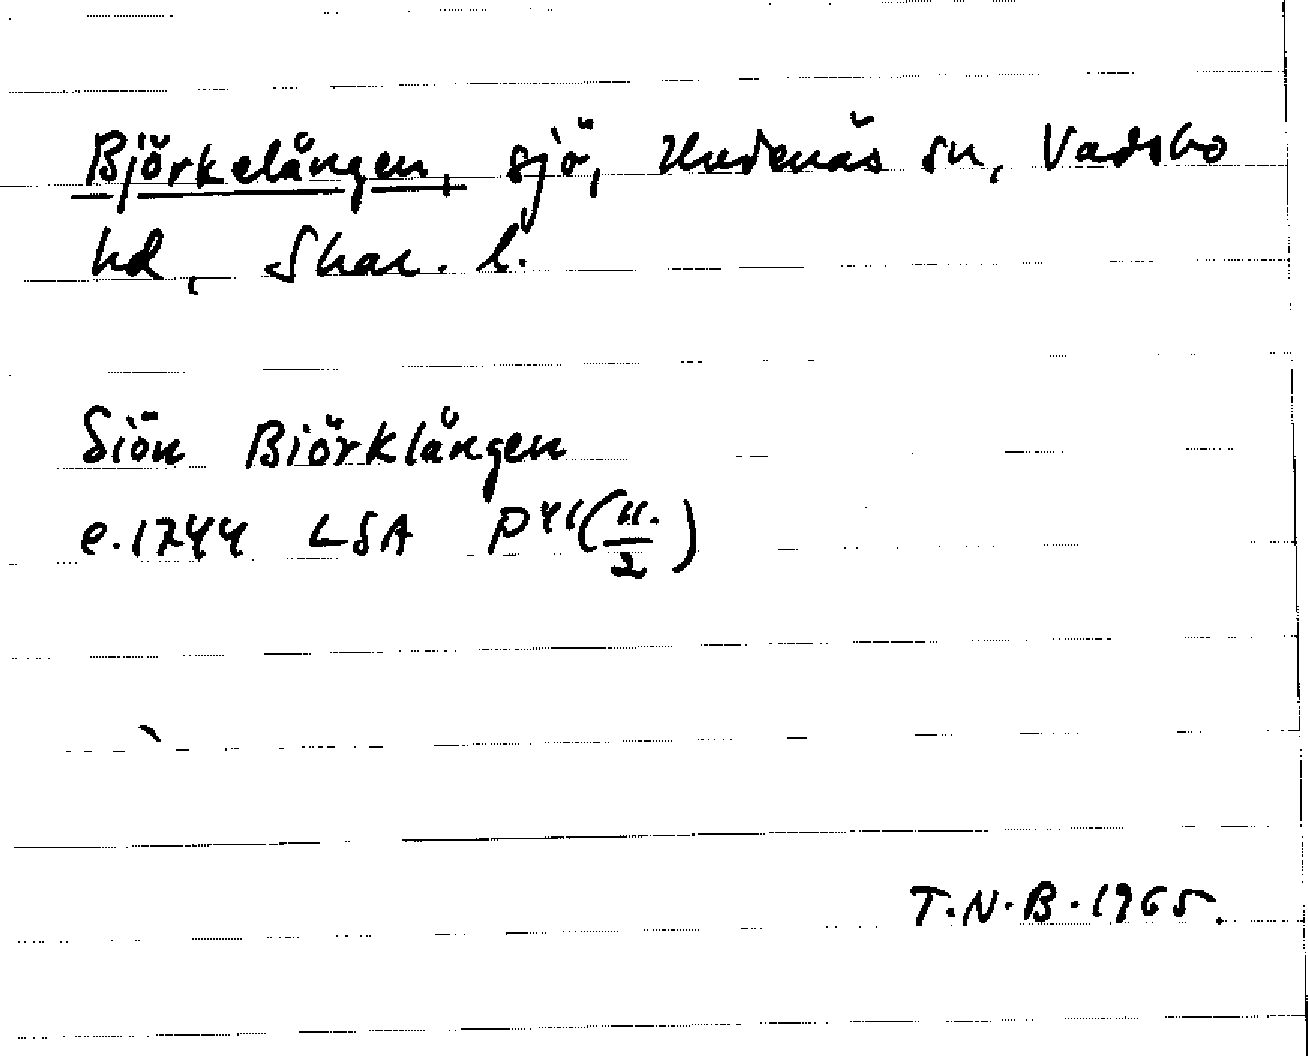 Björkelången, sjö, Undenäs sn, Vadsbo
hd, Skar. l.
Siön Biörklången
e. 1744 LSA P41(11./2)
T.N.B. 1965.